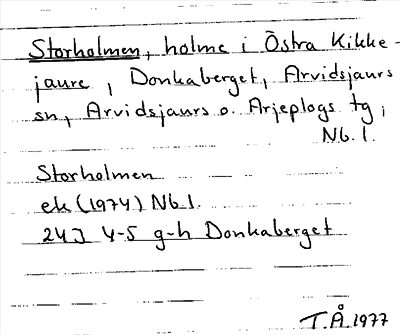 Storholmen, holme i Östra Kikke-
jaure, Donkaberget, Arvidsjaurs
sn, Arvidsjaurs o. Arjeplogs tg,
Nb. l.
Storholmen
ek (1974) Nb l.
24J 4-5 g-h Donkaberget
T.Å. 1977